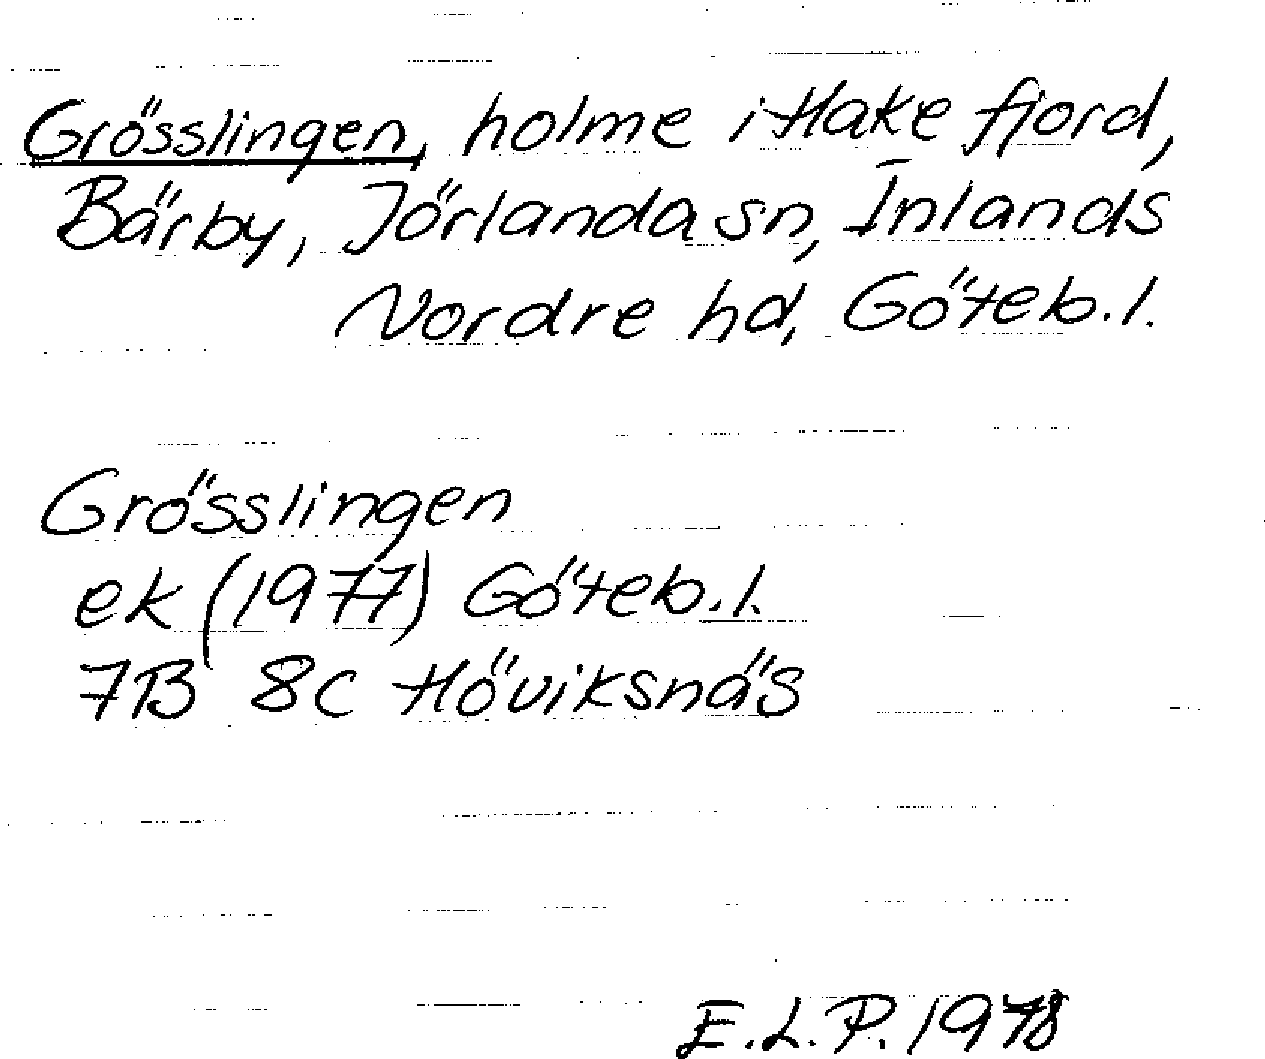 Grösslingen, holme i Hake fjord,
Bärby, Jörlanda sn, Inlands
Nordre hd, Göteb.l.
Grösslingen
ek (1977) Göteb.l.
7B 8C Höviksnäs
E.L.P. 1978